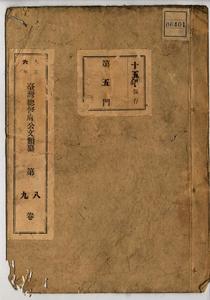 06401
十五年保存
第五門
大正
六年
臺灣總督府公文類纂
第八九卷